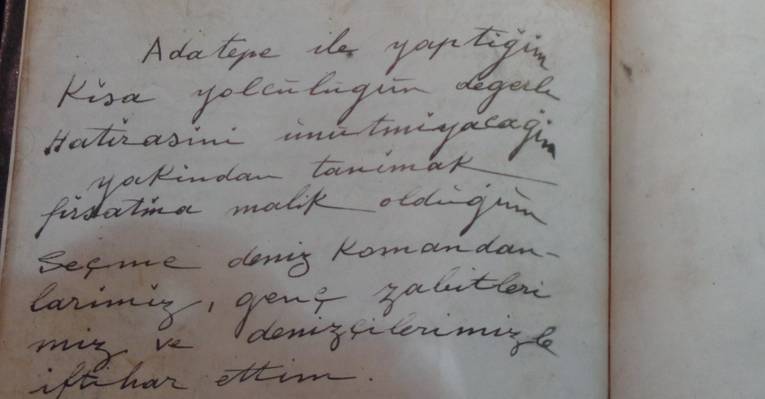 Adatepe ile yaptiğim
Kisa yolculuğun değerli
Hatirasini unutmiyacağim
yakindan tanimak
firsatina malik olduğum
Seçme deniz Komandan-
larimiz, genç zabitleri
miz ve denizçilerimizle
iftihar ettim.